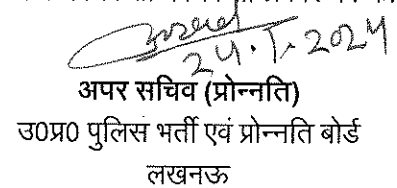 24.1.2024
अपर सचिव (प्रोन्नति)
उ0प्र0 पुलिस भर्ती एवं प्रोन्नति बोर्ड
लखनऊ